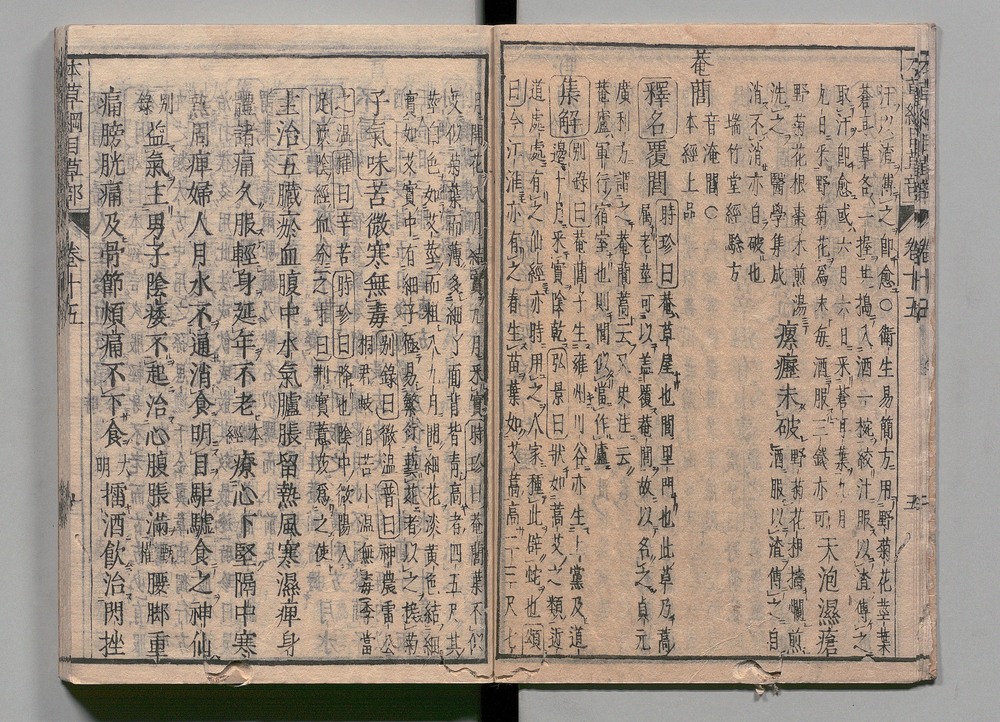 汁以渣傅之即愈○衛生易簡方用野菊花莖葉
蒼耳草各一握共搗入酒一椀絞汁服以渣傅之
取汗即愈或六月六日采蒼耳葉九月
九日采野菊花為末每酒服三錢亦可 天泡濕瘡
野菊花根棗木煎湯
洗之 醫學集成 瘰癧未破 野菊花根擣爛煎
酒服以渣傅之自
消不消亦自破也
瑞竹堂經驗方
菴䕡 音淹閭○
本經上品
釋名 覆閭 時珍曰菴草屋也閭里門也此草乃高
屬老莖可以蓋覆菴閭故以名之貞元
廣利方謂之菴䕡蒿云又史注云
菴廬軍行宿室也則閭似當作廬
集解 別錄曰菴䕡子生雍州川谷亦生上黨及道
邊十月采實陰乾弘景曰狀如蒿艾之類近
道處處有之仙經亦時用之人家種此辟蛇也頌
曰今江淮亦有之春生苗葉如艾蒿高二三尺七
月開花八月結實九月采實時珍曰菴䕡葉不似
艾似菊葉而薄多細丫面背皆青高者四五尺其
莖白色如艾莖而粗八九月開細花淡黃色結細
實如艾實中有細子極易繁衍藝花者以之接菊
子 氣味 苦微寒無毒 別錄曰微溫普曰神農雷公
桐君岐伯苦小溫無毒季當
之溫權曰辛苦時珍曰降也陰中微陽入
足厥陰經血分之才曰荊實薏苡為之使
主治 五臟瘀血腹中水氣臚脹留熱風寒濕痺身
體諸痛久服輕身延年不老 本經 療心下堅膈中寒
熱周痺婦人月水不通消食明目駏驉食之神仙
別錄 益氣主男子陰痿不起治心腹脹滿 甄權 腰腳重
痛膀胱痛及骨節煩痛不下食 大明 擂酒飲治閃挫
本草綱目草部 卷十五